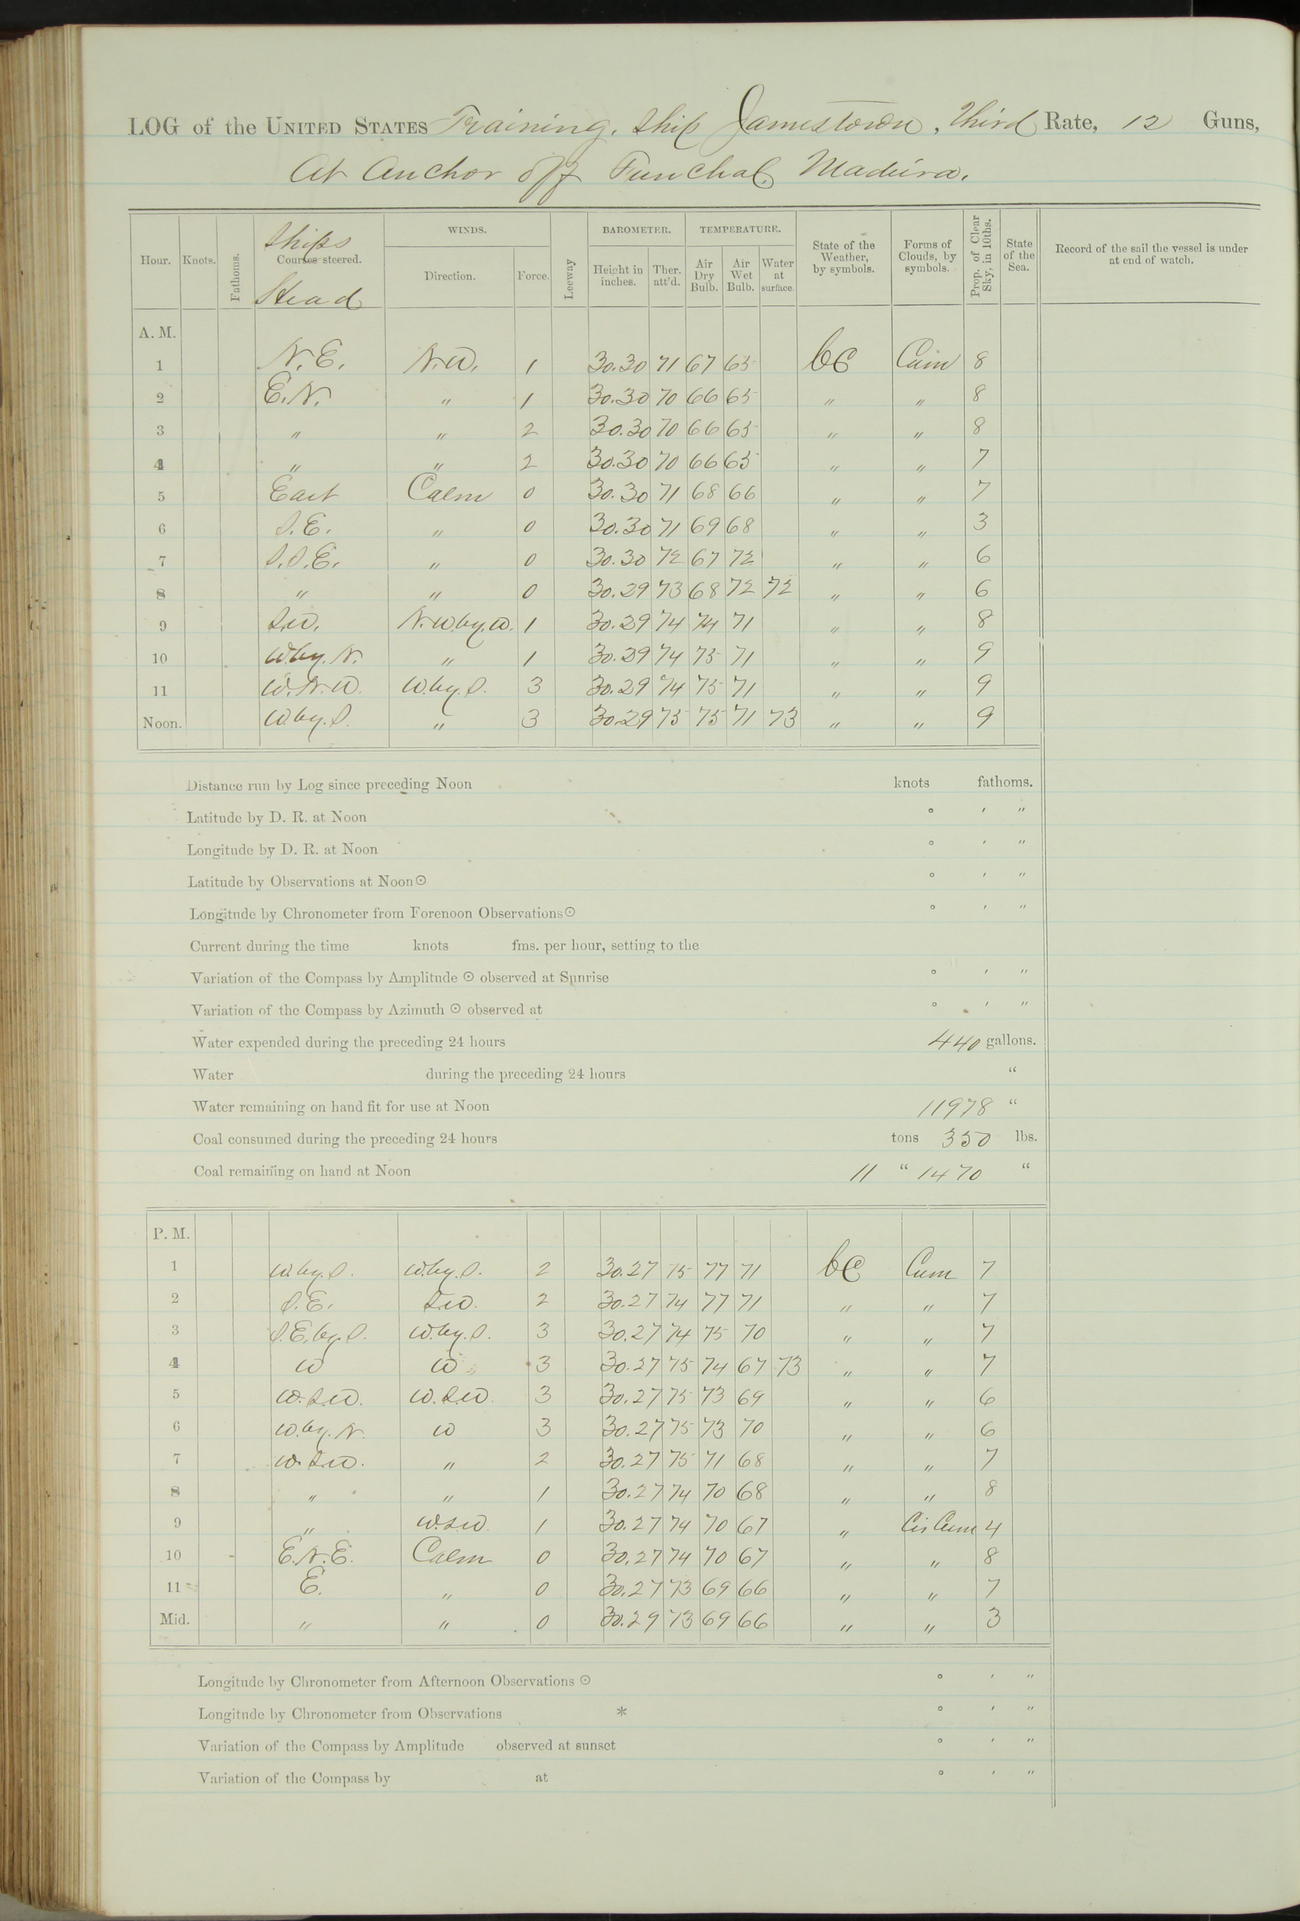 LOG of the UNITED STATES Training Ship Jamestown, Third Rate, 12 Guns,
At Anchor off Funchal, Madeira.
Hour. Knots. Fathoms. Ships Courses steered. Head WINDS. Direction. Force. Leeway BAROMETER. Height in inches. Ther. att'd. TEMPERATURE. Air Dry Bulb. Air Wet Bulb. Water at surface. State of the Weather, by symbols. Forms of Clouds, by symbols. Prop. of Clear Sky, in 10ths. State of the Sea. Record of the sail the vessel is under at end of watch.
A. M.
1 N.E. N.W. 1 30.30 71 67 65 bc Cum 8
2 E.N. " 1 30.30 70 66 65 " " 8
3 " " 2 30.30 70 66 65 " " 8
4 " " 2 30.30 70 66 65 " " 7
5 East Calm 0 30.30 71 68 66 " " 7
6 S.E. " 0 30.30 71 69 68 " " 3
7 S.S.E. " 0 30.30 72 67 72 " " 6
8 " " 0 30.29 73 68 72 72 " " 6
9 S.W. N.W.by.W. 1 30.29 74 74 71 " " 8
10 W.by.N. " 1 30.29 74 75 71 " " 9
11 W.N.W. W.by.S. 3 30.29 74 75 71 " " 9
Noon. W.by.S. " 3 30.29 75 75 71 73 " " 9
Distance run by Log since preceding Noon knots fathoms.
Latitude by D. R. at Noon ° ′ ″
Longitude by D. R. at Noon ° ′ ″
Latitude by Observations at Noon ☉ ° ′ ″
Longitude by Chronometer from Forenoon Observations ☉ ° ′ ″
Current during the time knots fms. per hour, setting to the
Variation of the Compass by Amplitude ☉ observed at Sunrise ° ′ ″
Variation of the Compass by Azimuth ☉ observed at ° ′ ″
Water expended during the preceding 24 hours 440 gallons.
Water during the preceding 24 hours "
Water remaining on hand fit for use at Noon 11978 "
Coal consumed during the preceding 24 hours tons 350 lbs.
Coal remaining on hand at Noon 11 " 1470 "
P. M.
1 W.by.S. W.by.S. 2 30.27 75 77 71 bc Cum 7
2 S.E. S.W. 2 30.27 74 77 71 " " 7
3 S.E.by.S. W.by.S. 3 30.27 74 75 70 " " 7
4 W W 3 30.27 75 74 67 73 " " 7
5 W.S.W. W.S.W. 3 30.27 75 73 69 " " 6
6 W.by.N. W 3 30.27 75 73 70 " " 6
7 W.S.W. " 2 30.27 75 71 68 " " 7
8 " " 1 30.27 74 70 68 " " 8
9 " W.S.W. 1 30.27 74 70 67 " Cir Cum 4
10 E.N.E. Calm 0 30.27 74 70 67 " " 8
11 E. " 0 30.27 73 69 66 " " 7
Mid. " " 0 30.29 73 69 66 " " 3
Longitude by Chronometer from Afternoon Observations ☉ ° ′ ″
Longitude by Chronometer from Observations * ° ′ ″
Variation of the Compass by Amplitude observed at sunset ° ′ ″
Variation of the Compass by at ° ′ ″